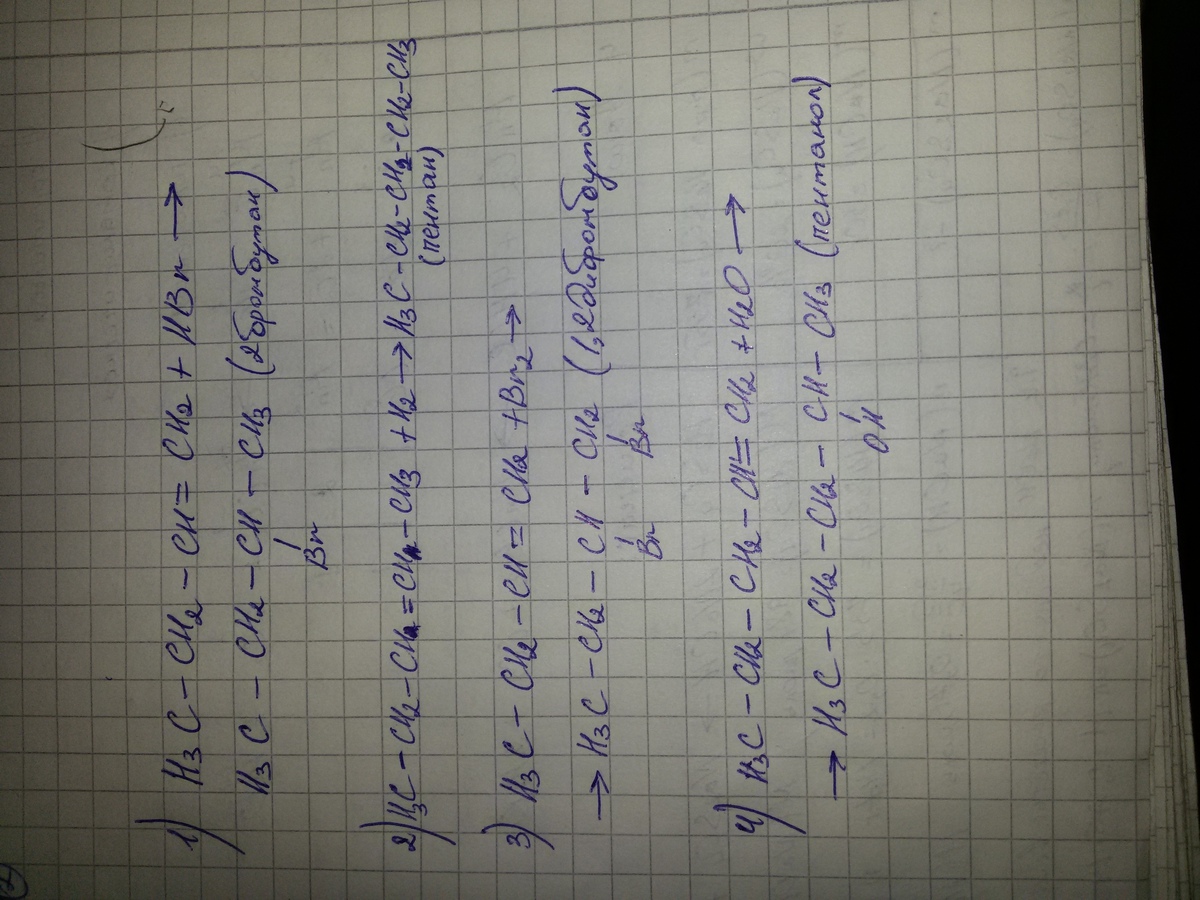 2
1) H3C - CH2 - CH = CH2 + HBr →
H3C - CH2 - CH - CH3 (2 бромбутан)
Br
2) H3C - CH2 - CH = CH - CH3 + H2 → H3C - CH2 - CH2 - CH2 - CH3
(пентан)
3) H3C - CH2 - CH = CH2 + Br2 →
→ H3C - CH2 - CH - CH2 (1,2 дибромбутан)
Br Br
4) H3C - CH2 - CH2 - CH = CH2 + H2O →
→ H3C - CH2 - CH2 - CH - CH3 (пентанол)
OH